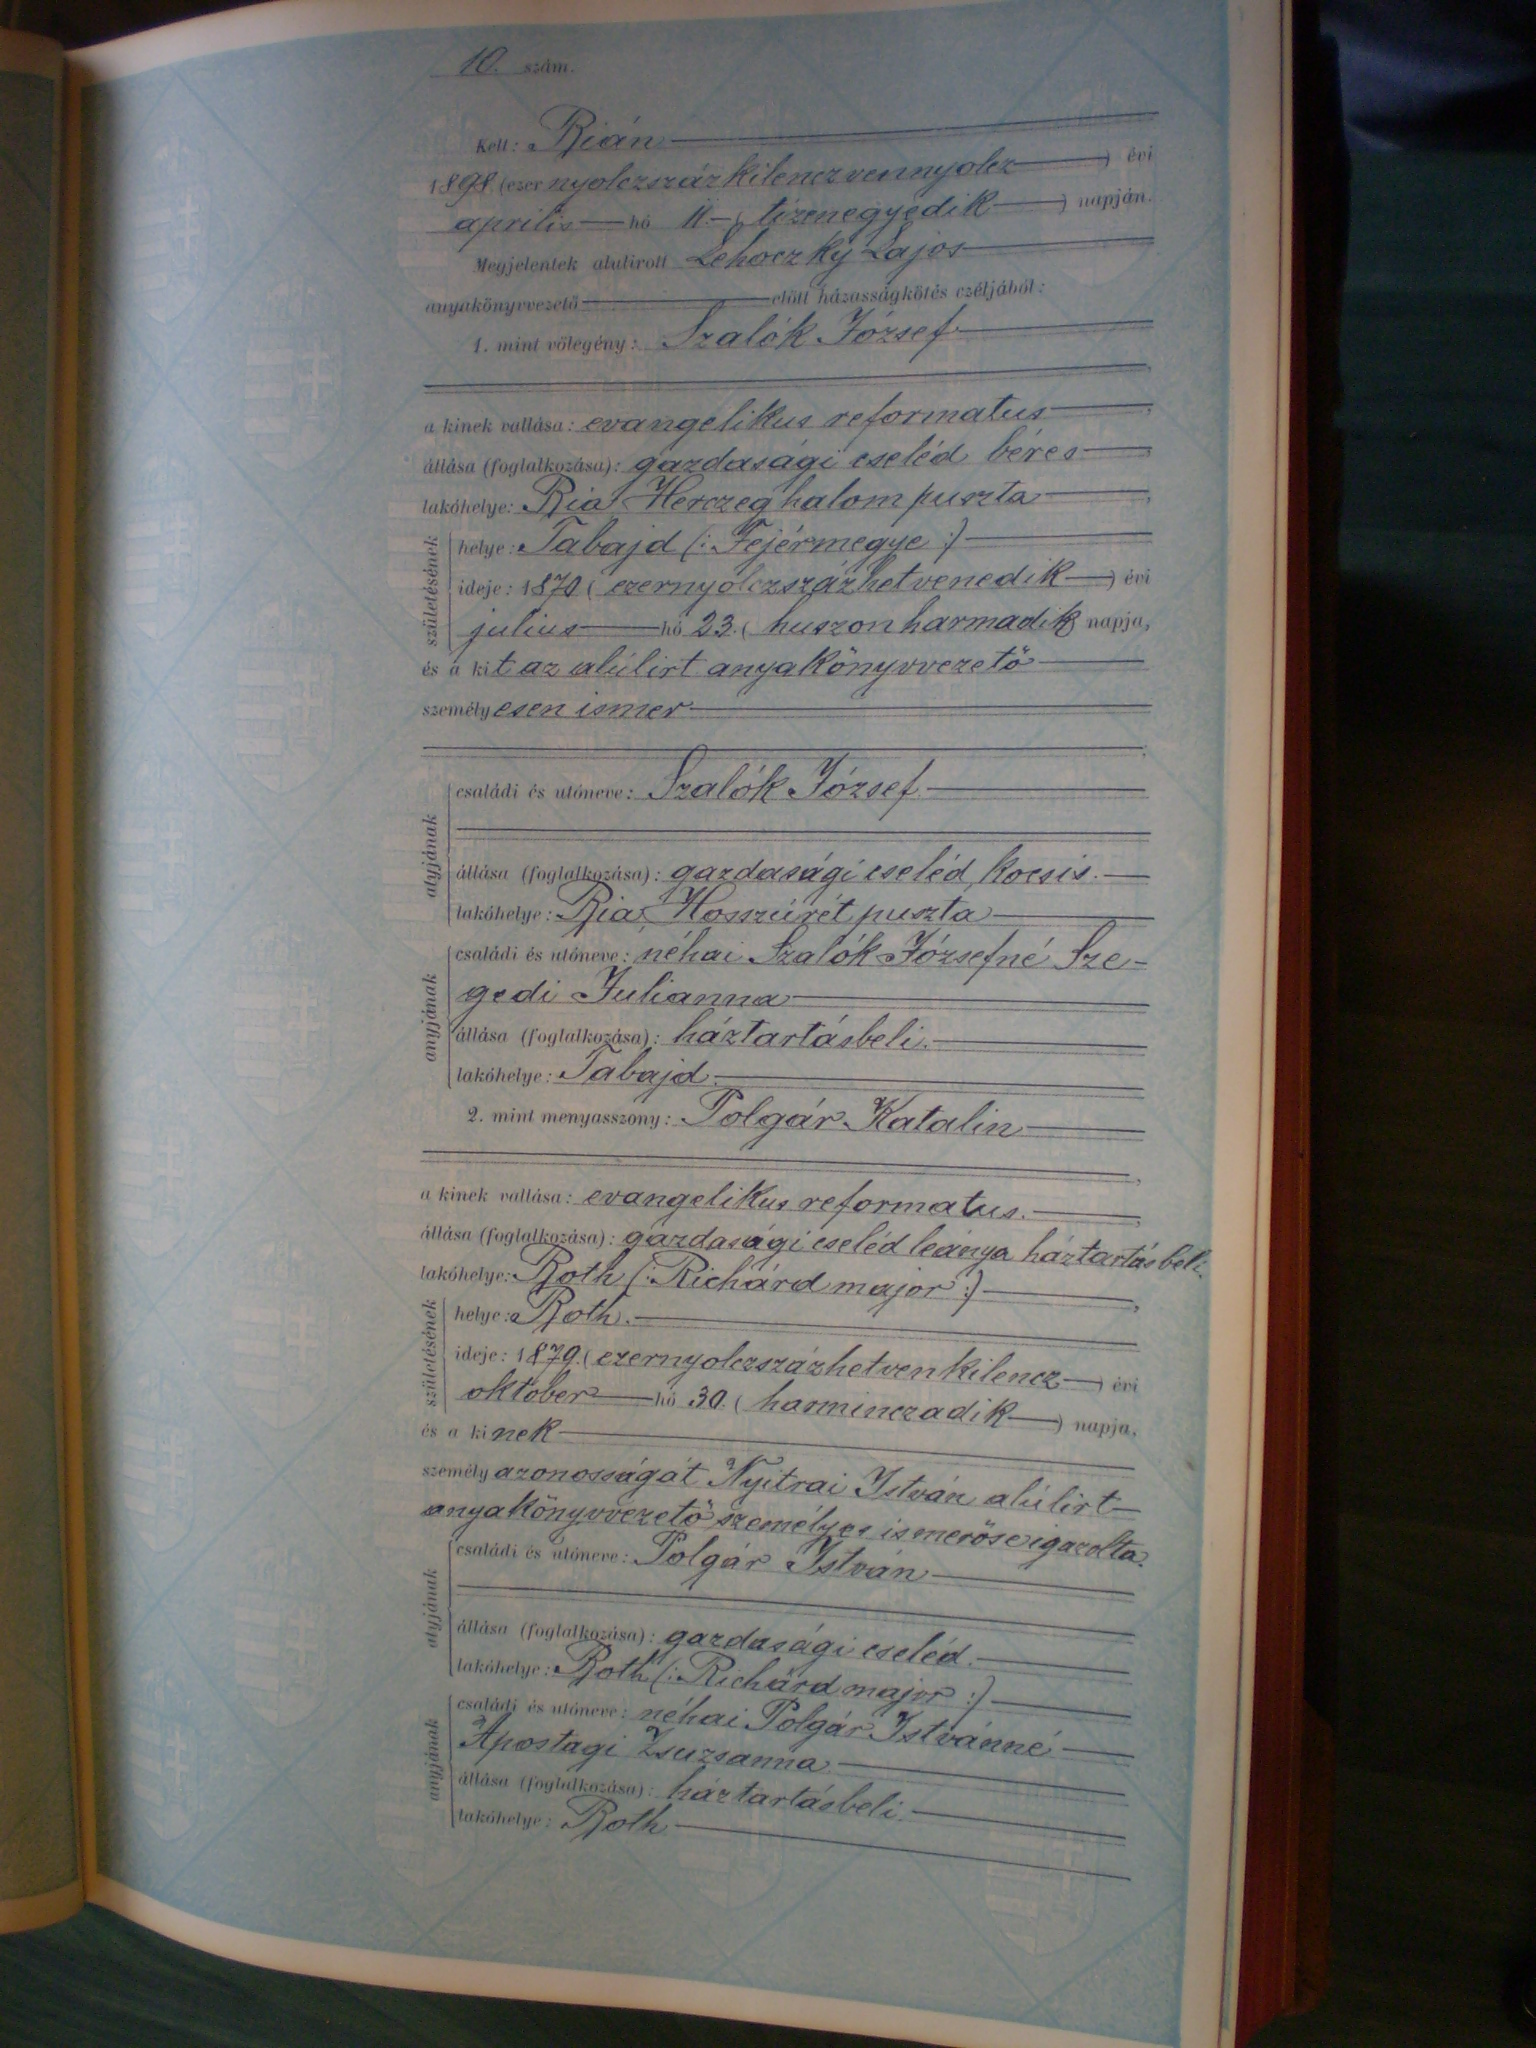 10. szám.
Kelt: Bián
1898. (ezer nyolczszázkilenczvennyolcz) évi
aprilis hó 11. (tizenegyedik) napján.
Megjelentek alulirott Lehoczky Lajos
anyakönyvvezető előtt házasságkötés czéljából:
1. mint vőlegény: Szalók József
a kinek vallása: evangelikus reformatus,
állása (foglalkozása): gazdasági cseléd béres,
lakóhelye: Bia Herczeghalom puszta,
születésének
helye: Tabajd (: Fejérmegye :)
ideje: 1870 (ezernyolczszázhetvenedik) évi
julius hó 23. (huszonharmadik) napja,
és a kit az alúlirt anyakönyvvezető
személyesen ismer
atyjának
családi és utóneve: Szalók József.
állása (foglalkozása): gazdasági cseléd, kocsis.
lakóhelye: Bia, Hosszúrét puszta
anyjának
családi és utóneve: néhai Szalók Józsefné Sze-
gedi Julianna
állása (foglalkozása): háztartásbeli.
lakóhelye: Tabajd.
2. mint menyasszony: Polgár Katalin
a kinek vallása: evangelikus reformatus.,
állása (foglalkozása): gazdasági cseléd leánya háztartásbeli.
lakóhelye: Both (: Richárd major :),
születésének
helye: Both.
ideje: 1879. (ezernyolczszázhetvenkilencz) évi
oktober hó 30. (harminczadik) napja,
és a kinek
személyazonosságát Nyitrai István alúlirt
anyakönyvvezető személyes ismerőse igazolta.
atyjának
családi és utóneve: Polgár István
állása (foglalkozása): gazdasági cseléd.
lakóhelye: Both (: Richárd major :)
anyjának
családi és utóneve: néhai Polgár Istvánné
Apostagi Zsuzsanna
állása (foglalkozása): háztartásbeli.
lakóhelye: Both